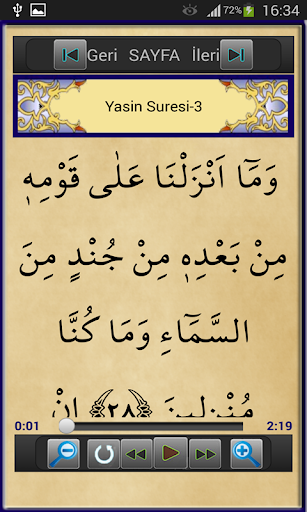 72% 16:34
Geri SAYFA İleri
Yasin Suresi-3
وَمَٓا اَنْزَلْنَا عَلٰى قَوْمِه۪
مِنْ بَعْدِه۪ مِنْ جُنْدٍ مِنَ
السَّمَٓاءِ وَمَا كُنَّا
مُنْزِلٖينَ ﴿٢٨﴾ اِنْ
0:01 2:19